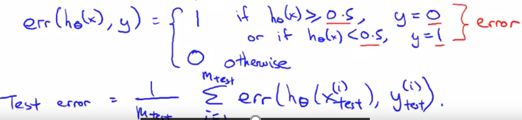 err(hθ(x), y) = { 1 if hθ(x) ≥ 0.5, y = 0 } error
or if hθ(x) < 0.5, y = 1
0 otherwise
Test error = 1/m_test Σ_{i=1}^{m_test} err(hθ(x_test^(i)), y_test^(i)).